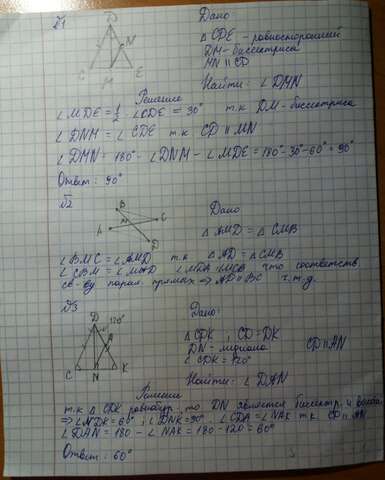 №1
D
N
C M E
Дано
△ CDE - равносторонний
DM - биссектриса
MN || CD
Найти: ∠ DMN
Решение
∠ MDE = 1/2 · ∠CDE = 30° т.к DM - биссектриса
∠ DNM = ∠ CDE т.к CD || MN
∠ DMN = 180° - ∠ DNM - ∠ MDE = 180° - 30° - 60° = 90°
Ответ: 90°
№2
B
M C
A
D
Дано
△ AMD = △ CMB
∠ BMC = ∠AMD т.к △ AD = △ CMB
∠ CBM = ∠ MAD что соответств
св-ву парал. прямых => AD || BC ч.т.д.
№3
D
120°
A
C N K
Дано:
△ CDK , CD = DK
DN = медиана CD || AN
∠ CDK = 120°
Найти: ∠ DAN
Решение
т.к △ CDK равнобур, то DN является биссектр. и
=> ∠NDK = 60° ; ∠ DNK = 90° , ∠ CDA = ∠ NAK т.к. CD || AN
∠ DAN = 180 - ∠ NAK = 180 - 120 = 60°
Ответ: 60°